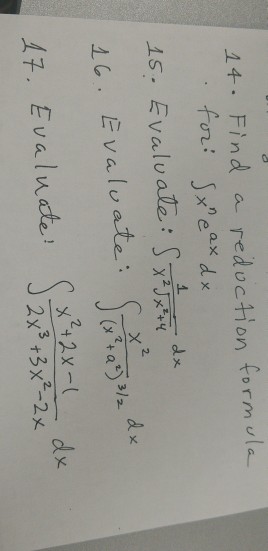 14. Find a reduction formula
for: ∫xⁿe^{ax} dx
15. Evaluate: ∫ 1/(x²√(x²+4)) dx
16. Evaluate: ∫ x²/(x²+a²)^{3/2} dx
17. Evaluate: ∫ (x²+2x-1)/(2x³+3x²-2x) dx